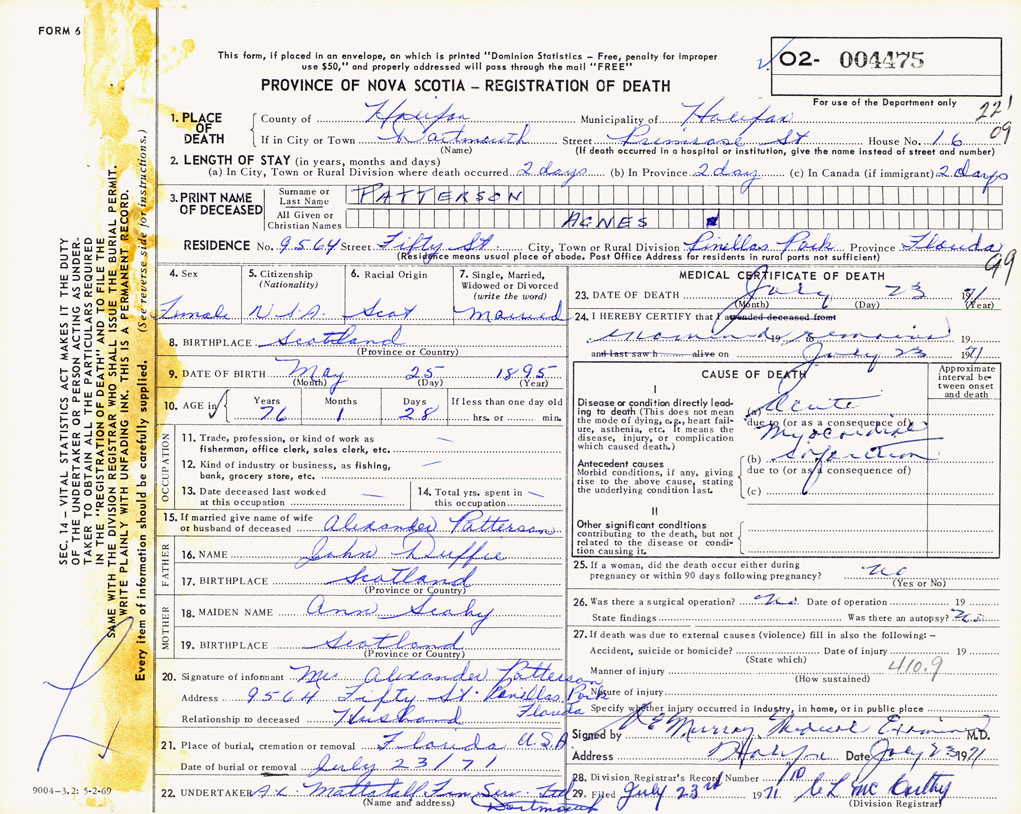 FORM 6
This form, if placed in an envelope, on which is printed "Dominion Statistics – Free, penalty for improper
use $50," and properly addressed will pass through the mail "FREE"
02- 004475
PROVINCE OF NOVA SCOTIA – REGISTRATION OF DEATH
For use of the Department only
221
09
1. PLACE OF DEATH
County of Halifax Municipality of Halifax
If in City or Town Dartmouth Street Primrose St House No. 16
(Name) (If death occurred in a hospital or institution, give the name instead of street and number)
2. LENGTH OF STAY (in years, months and days)
(a) In City, Town or Rural Division where death occurred 2 days (b) In Province 2 day (c) In Canada (if immigrant) 2 days
3. PRINT NAME OF DECEASED
Surname or Last Name PATTERSON
All Given or Christian Names AGNES
RESIDENCE No. 9564 Street Fifty St City, Town or Rural Division Pinellas Park Province Florida
(Residence means usual place of abode. Post Office Address for residents in rural parts not sufficient)
99
4. Sex
Female
5. Citizenship
(Nationality)
U.S.A.
6. Racial Origin
Scot
7. Single, Married,
Widowed or Divorced
(write the word)
Married
8. BIRTHPLACE Scotland
(Province or Country)
9. DATE OF BIRTH May 25 1895
(Month) (Day) (Year)
10. AGE in
Years Months Days If less than one day old
76 1 28 hrs. or min.
OCCUPATION
11. Trade, profession, or kind of work as
fisherman, office clerk, sales clerk, etc. —
12. Kind of industry or business, as fishing,
bank, grocery store, etc. —
13. Date deceased last worked
at this occupation —
14. Total yrs. spent in
this occupation —
15. If married give name of wife
or husband of deceased Alexander Patterson
FATHER
16. NAME John Duffie
17. BIRTHPLACE Scotland
(Province or Country)
MOTHER
18. MAIDEN NAME Ann
19. BIRTHPLACE Scotland
(Province or Country)
20. Signature of informant Mr. Alexander Patterson
Address 9564 Fifty St. Pinellas Park
Florida
Relationship to deceased Husband
21. Place of burial, cremation or removal Florida U.S.A.
Date of burial or removal July 23/71
22. UNDERTAKER A.L. Mattatall Fun Serv. Ltd
(Name and address) Dartmouth
MEDICAL CERTIFICATE OF DEATH
23. DATE OF DEATH July 23 1971
(Month) (Day) (Year)
24. I HEREBY CERTIFY that I attended deceased from
examined remains 19 to 19
and last saw h alive on July 23 1971
CAUSE OF DEATH
Approximate
interval be-
tween onset
and death
I
Disease or condition directly lead-
ing to death (This does not mean
the mode of dying, e.g., heart fail-
ure, asthenia, etc. It means the
disease, injury, or complication
which caused death.)
(a) Acute
due to (or as a consequence of)
Myocardial
Antecedent causes
Morbid conditions, if any, giving
rise to the above cause, stating
the underlying condition last.
(b) infarction
due to (or as a consequence of)
(c)
II
Other significant conditions
contributing to the death, but not
related to the disease or condi-
tion causing it.
25. If a woman, did the death occur either during
pregnancy or within 90 days following pregnancy? No
(Yes or No)
26. Was there a surgical operation? No Date of operation 19
State findings Was there an autopsy? No
27. If death was due to external causes (violence) fill in also the following: –
Accident, suicide or homicide? Date of injury 19
(State which)
Manner of injury 410.9
(How sustained)
Nature of injury
Specify whether injury occurred in industry, in home, or in public place
Signed by Murray Medical Examiner M.D.
Address Halifax Date July 23 1971
28. Division Registrar's Record Number 110
29. Filed July 23rd 1971 C L McCarthy
(Division Registrar)
SEC. 14 – VITAL STATISTICS ACT MAKES IT THE DUTY
OF THE UNDERTAKER OR PERSON ACTING AS UNDER-
TAKER TO OBTAIN ALL THE PARTICULARS REQUIRED
IN THE "REGISTRATION OF DEATH" AND TO FILE THE
SAME WITH THE DIVISION REGISTRAR WHO SHALL ISSUE THE BURIAL PERMIT.
WRITE PLAINLY WITH UNFADING INK. THIS IS A PERMANENT RECORD.
Every item of information should be carefully supplied. (See reverse side for instructions.)
9004-3.2: 5-2-69